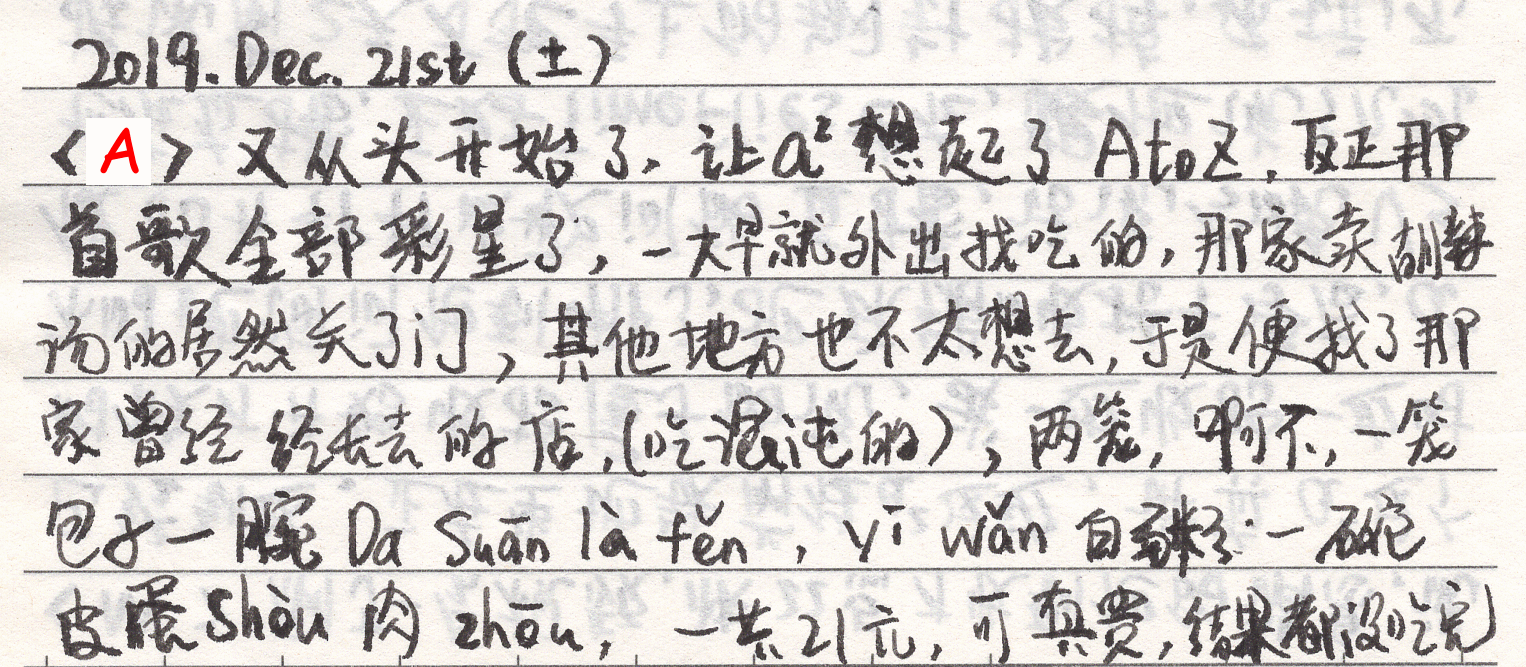 2019. Dec. 21st (土)
<A> 又从头开始了，让a²想起了 AtoZ，反正那
首歌全部彩星了，一大早就外出找吃的，那家卖胡辣
汤的居然关了门，其他地方也不太想去，于是便找了那
家曾经经长去的店，(吃混沌的)，两笼，啊不，一笼
包子一腕 Da Suān là fěn，yī wǎn 白粥 一碗
皮蛋 Shòu 肉 zhōu，一共21元，可真贵，结果都没吃完